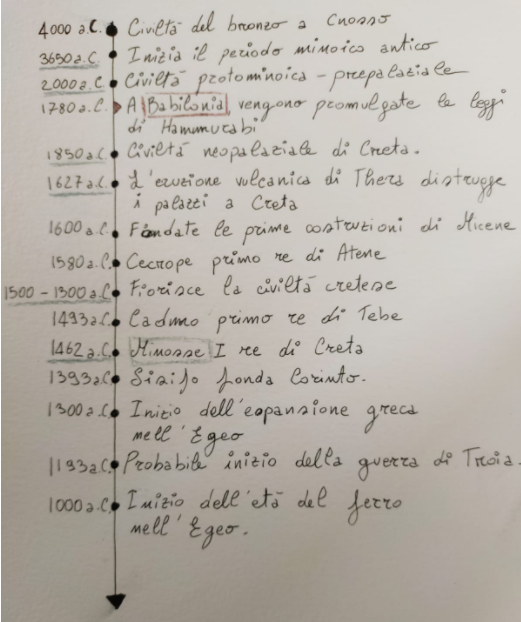 4000 a.C. Civiltà del bronzo a Cnosso
3650 a.C. Inizia il periodo minoico antico
2000 a.C. Civiltà protominoica - prepalaziale
1780 a.C. A Babilonia, vengono promulgate le leggi
di Hammurabi
1850 a.C. Civiltà neopalaziale di Creta.
1627 a.C. L'eruzione vulcanica di Thera distrugge
i palazzi a Creta
1600 a.C. Fondate le prime costruzioni di Micene
1580 a.C. Cecrope primo re di Atene
1500 - 1300 a.C. Fiorisce la civiltà cretese
1493 a.C. Cadmo primo re di Tebe
1462 a.C. Minosse I re di Creta
1393 a.C. Sisifo fonda Corinto.
1300 a.C. Inizio dell'espansione greca
nell'Egeo
1193 a.C. Probabile inizio della guerra di Troia.
1000 a.C. Inizio dell'età del ferro
nell'Egeo.